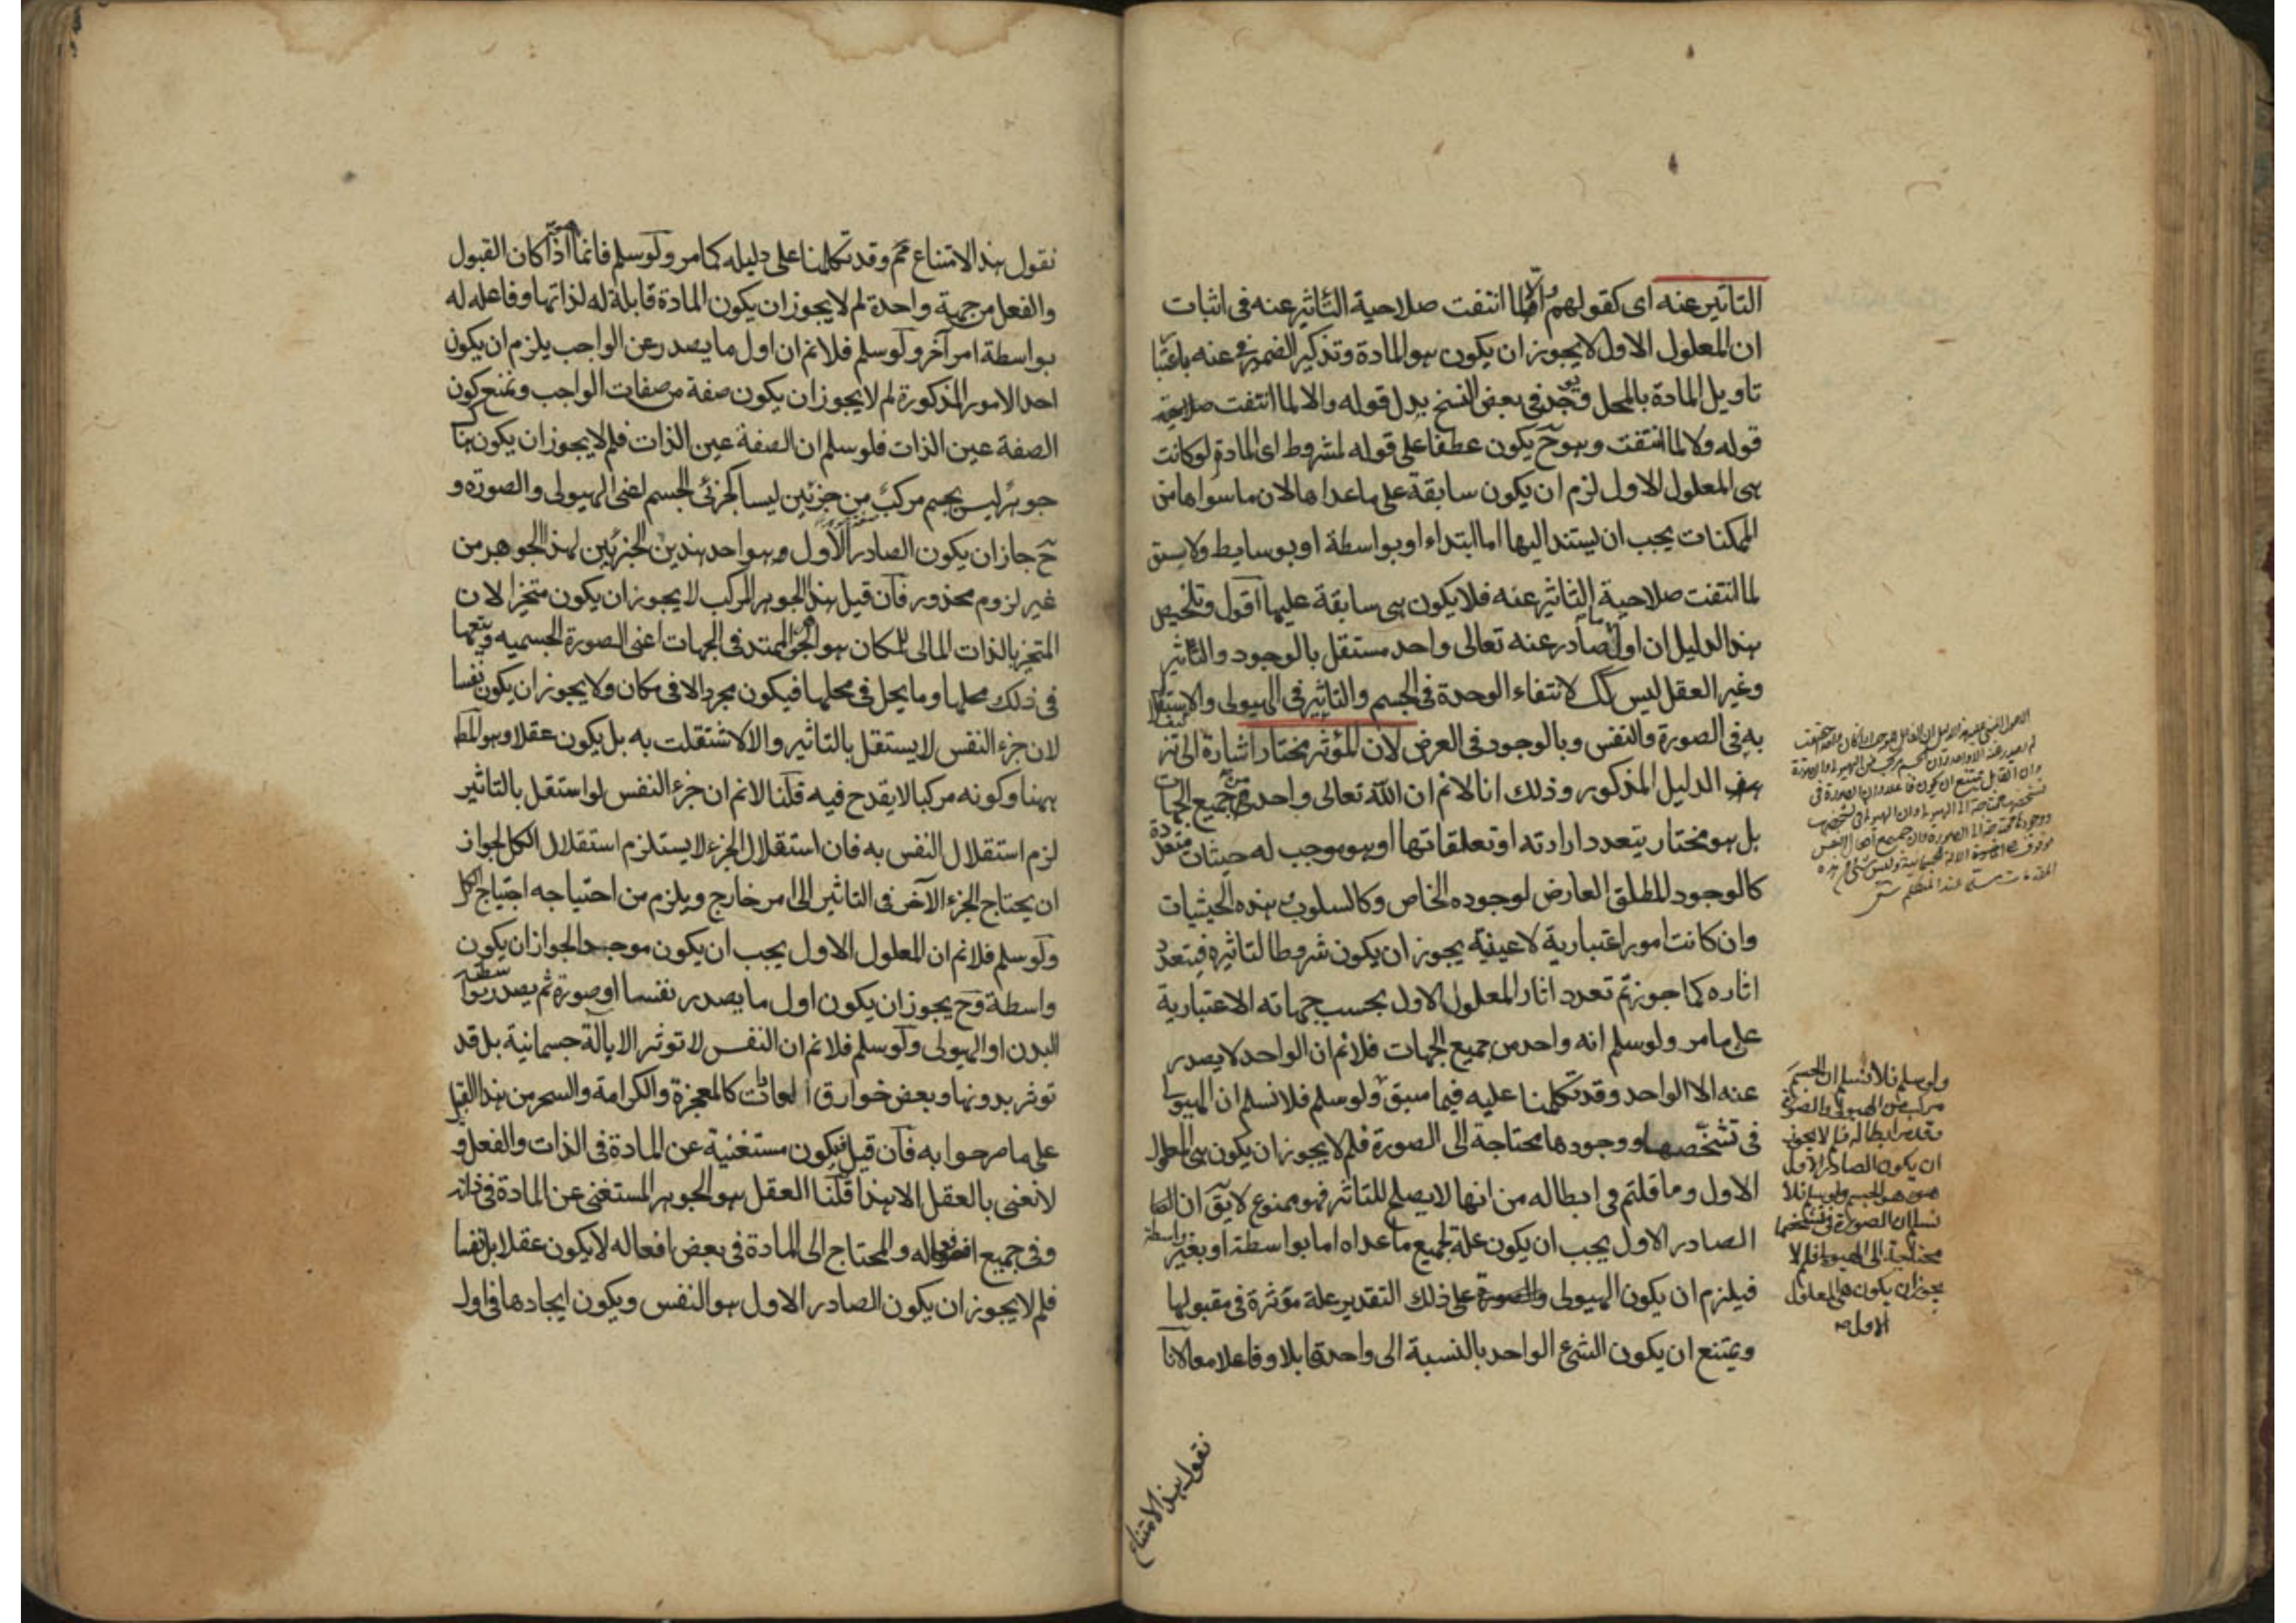 التاثير عنه اى كقولهم والا لما انتفت صلاحية التاثير عنه فى اثبات
ان المعلول الاول لا يجوز ان يكون هو المادة وتذكير الضمير فى عنه باعتبا
تاويل المادة بالمحل وقد وجد فى بعض النسخ بدل قوله والا لما انتفت صلاحية
قوله ولا لما انتفت وهو ح يكون عطفا على قوله لمشروط اى المادة لو كانت
هى المعلول الاول لزم ان يكون سابقة على ما عداها لان ما سواها من
الممكنات يجب ان يستند اليها اما ابتداء او بواسطة او بوسايط ولا سبق
لما انتفت صلاحية التاثير عنه فلا يكون هى سابقة عليها اقول وتلخيص
هذا الدليل ان اول صادر عنه تعالى واحد مستقل بالوجود والتاثير
وغير العقل ليس كك لانتفاء الوحدة فى الجسم والتاثير فى الهيولى والاستقلال
به فى الصورة والنفس وبالوجود فى العرض لان المؤثر مختار اشارة الى تز
الدليل المذكور وذلك انا لا نم ان الله تعالى واحد من جميع الجهات
بل هو مختار يتعدد ارادته او تعلقاتها او هو موجب له حيثيات متعددة
كالوجود المطلق العارض لوجوده الخاص وكالسلوب هذه الحيثيات
وان كانت امور اعتبارية لا عينية يجوز ان يكون شروطا لتاثيره فيتعدد
اثاره كما جوزتم تعدد اثار المعلول الاول بحسب جهاته الاعتبارية
على ما مر ولو سلم انه واحد من جميع الجهات فلا نم ان الواحد لا يصدر
عنه الا الواحد وقد تكلمنا عليه فيما سبق ولو سلم فلا نسلم ان الهيولى
فى تشخصها ووجودها محتاجة الى الصورة فلم لا يجوز ان يكون هى المعلول
الاول وما قلتم فى ابطاله من انها لا يصلح للتاثير فهو ممنوع لا يق ان
الصادر الاول يجب ان يكون علة لجميع ما عداه اما بواسطة او بغير واسطة
فيلزم ان يكون الهيولى على ذلك التقدير علة مؤثرة فى مقبولها
ويمتنع ان يكون الشئ الواحد بالنسبة الى واحد قابلا وفاعلا معا لانا
نقول هذا الامتناع
ولو سلم فلا نسلم ان الجسم
مركب من الهيولى والصورة
وقد مر ابطاله فلم لا يجوز
ان يكون الصادر الاول
هو الجسم ولو سلم فلا
نسلم ان الصورة فى تشخصها
محتاجة الى الهيولى فلم لا
يجوز ان يكون هى المعلول
الاول صه
نقول هذا الامتناع مم وقد تكلمنا على دليله كما مر ولو سلم فانما اذا كان القبول
والفعل من جهة واحدة لم لا يجوز ان يكون المادة قابلة له لذاتها وفاعله له
بواسطة امر آخر ولو سلم فلا نم ان اول ما يصدر عن الواجب يلزم ان يكون
احد الامور المذكورة لم لا يجوز ان يكون صفة من صفات الواجب ونمنع كون
الصفة عين الذات فلو سلم ان الصفة عين الذات فلم لا يجوز ان يكون هنا
جوهر ليس بجسم مركب من جزئين ليسا كجزئى الجسم اعنى الهيولى والصورة و
ح جاز ان يكون الصادر الاول وهو احد هذين الجزئين لهذا الجوهر من
غير لزوم محذور فان قيل هذا الجوهر المركب لا يجوز ان يكون متحيزا لان
المتحيز بالذات المالى للمكان هو الممتد فى الجهات اعنى الصورة الجسمية ويتبعها
فى ذلك محلها وما يحل فى محلها فيكون مجردا لا فى مكان ولا يجوز ان يكون نفسا
لان جزء النفس لا يستقل بالتاثير والا لاستقلت به بل يكون عقلا وهو المط
ههنا وكونه مركبا لا يقدح فيه قلنا لا نم ان جزء النفس لو استقل بالتاثير
لزم استقلال النفس به فان استقلال الجزء لا يستلزم استقلال الكل لجواز
ان يحتاج الجزء الآخر فى التاثير الى امر خارج ويلزم من احتياجه احتياج الكل
ولو سلم فلا نم ان المعلول الاول يجب ان يكون موجدا لجواز ان يكون
واسطة وح يجوز ان يكون اول ما يصدر نفسا او صورة ثم يصدر بواسطته
البدن او الهيولى ولو سلم فلا نم ان النفس لا توثر الا بالة جسمانية بل قد
توثر بدونها وبعض خوارق العادات كالمعجزة والكرامة والسحر من هذا القبيل
على ما صرحوا به فان قيل فيكون مستغنية عن المادة فى الذات والفعل و
لا نعنى بالعقل الا هذا قلنا العقل هو الجوهر المستغنى عن المادة فى ذاته
وفى جميع افعاله والمحتاج الى المادة فى بعض افعاله لا يكون عقلا بل نفسا
فلم لا يجوز ان يكون الصادر الاول هو النفس ويكون ايجادها فى اول